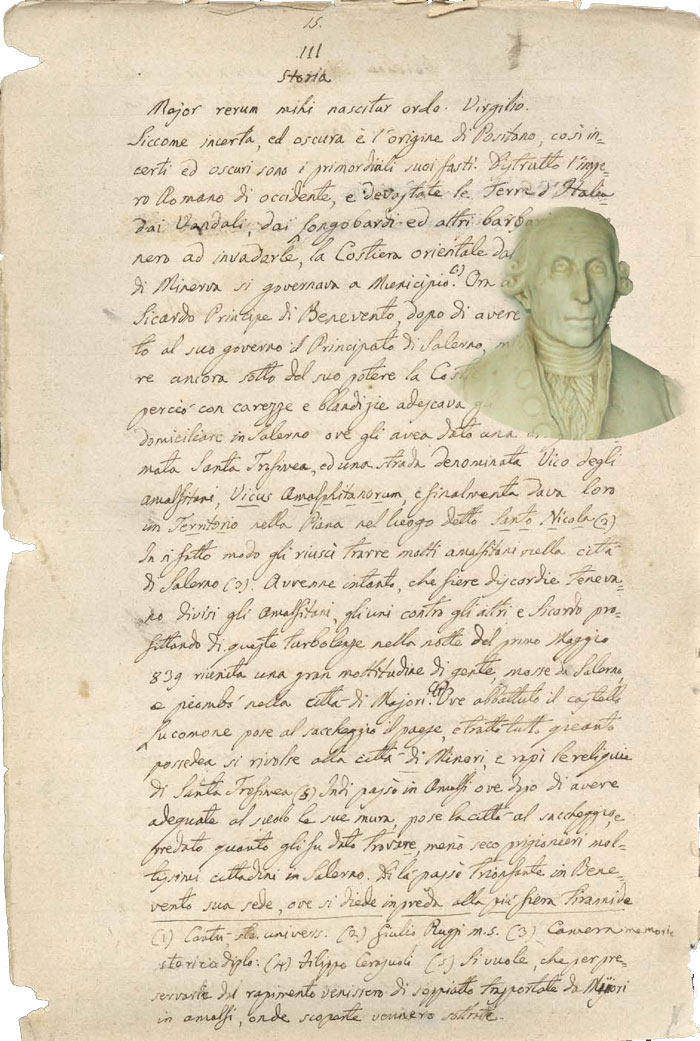 15.
III
Storia
Major rerum mihi nascitur ordo. Virgilio.
Siccome incerta, ed oscura è l'origine di Positano, così in=
certi ed oscuri sono i primordiali suoi fasti. Distrutto l'impe=
ro Romano di occidente, e devastate le Terre d'Italia
dai Vandali, dai Longobardi ed altri barbari
nero ad invaderle, la Costiera orientale da
di Minerva si governava a Municipio. (1) Ora
Sicardo Principe di Benevento, dopo di avere
to al suo governo il Principato di Salerno,
re ancora sotto del suo potere la Cost
perciò con carezze e blandizie adescava
domiciliare in Salerno ove gli avea dato una
mata Santa Trofimea, ed una strada denominata Vico degli
Amalfitani, Vicus Amalphitanorum, e finalmente dava loro
un Territorio nella Piana nel luogo detto Santo Nicola (2)
In sì fatto modo gli riuscì trarre molti amalfitani nella città
di Salerno (3). Avvenne intanto, che fiere discordie teneva=
no divisi gli Amalfitani, gli uni contro gli altri e Sicardo pro=
fittando di queste turbolenze nella notte del primo Maggio
839 riunita una gran moltitudine di gente, mosse da Salerno,
e piombò nella città di Majori. (4) Ove abbattuto il castello
Lucomone pose al saccheggio il paese, e tratto tutto quanto
possedea si rivolse alla città di Minori, e rapì le reliquie
di Santa Trofimea (5) Indi passò in Amalfi ove dopo di avere
adeguate al suolo le sue mura, pose la città al saccheggio, e
predato quanto gli fu dato trovare, menò seco prigionieri mol=
tissimi cittadini in Salerno. Di là passò trionfante in Bene=
vento sua sede, ove si diede in preda alla più fiera tirannide
(1) Cantù sto. univers. (2) Giulio Ruggi m.s. (3) Camera memorie
storico diplo: (4) Filippo Cerasuoli (5) Si vuole, che per pre=
servarle dal rapimento venissero di soppiatto trasportate da Mijori
in amalfi, onde scoperte vennero